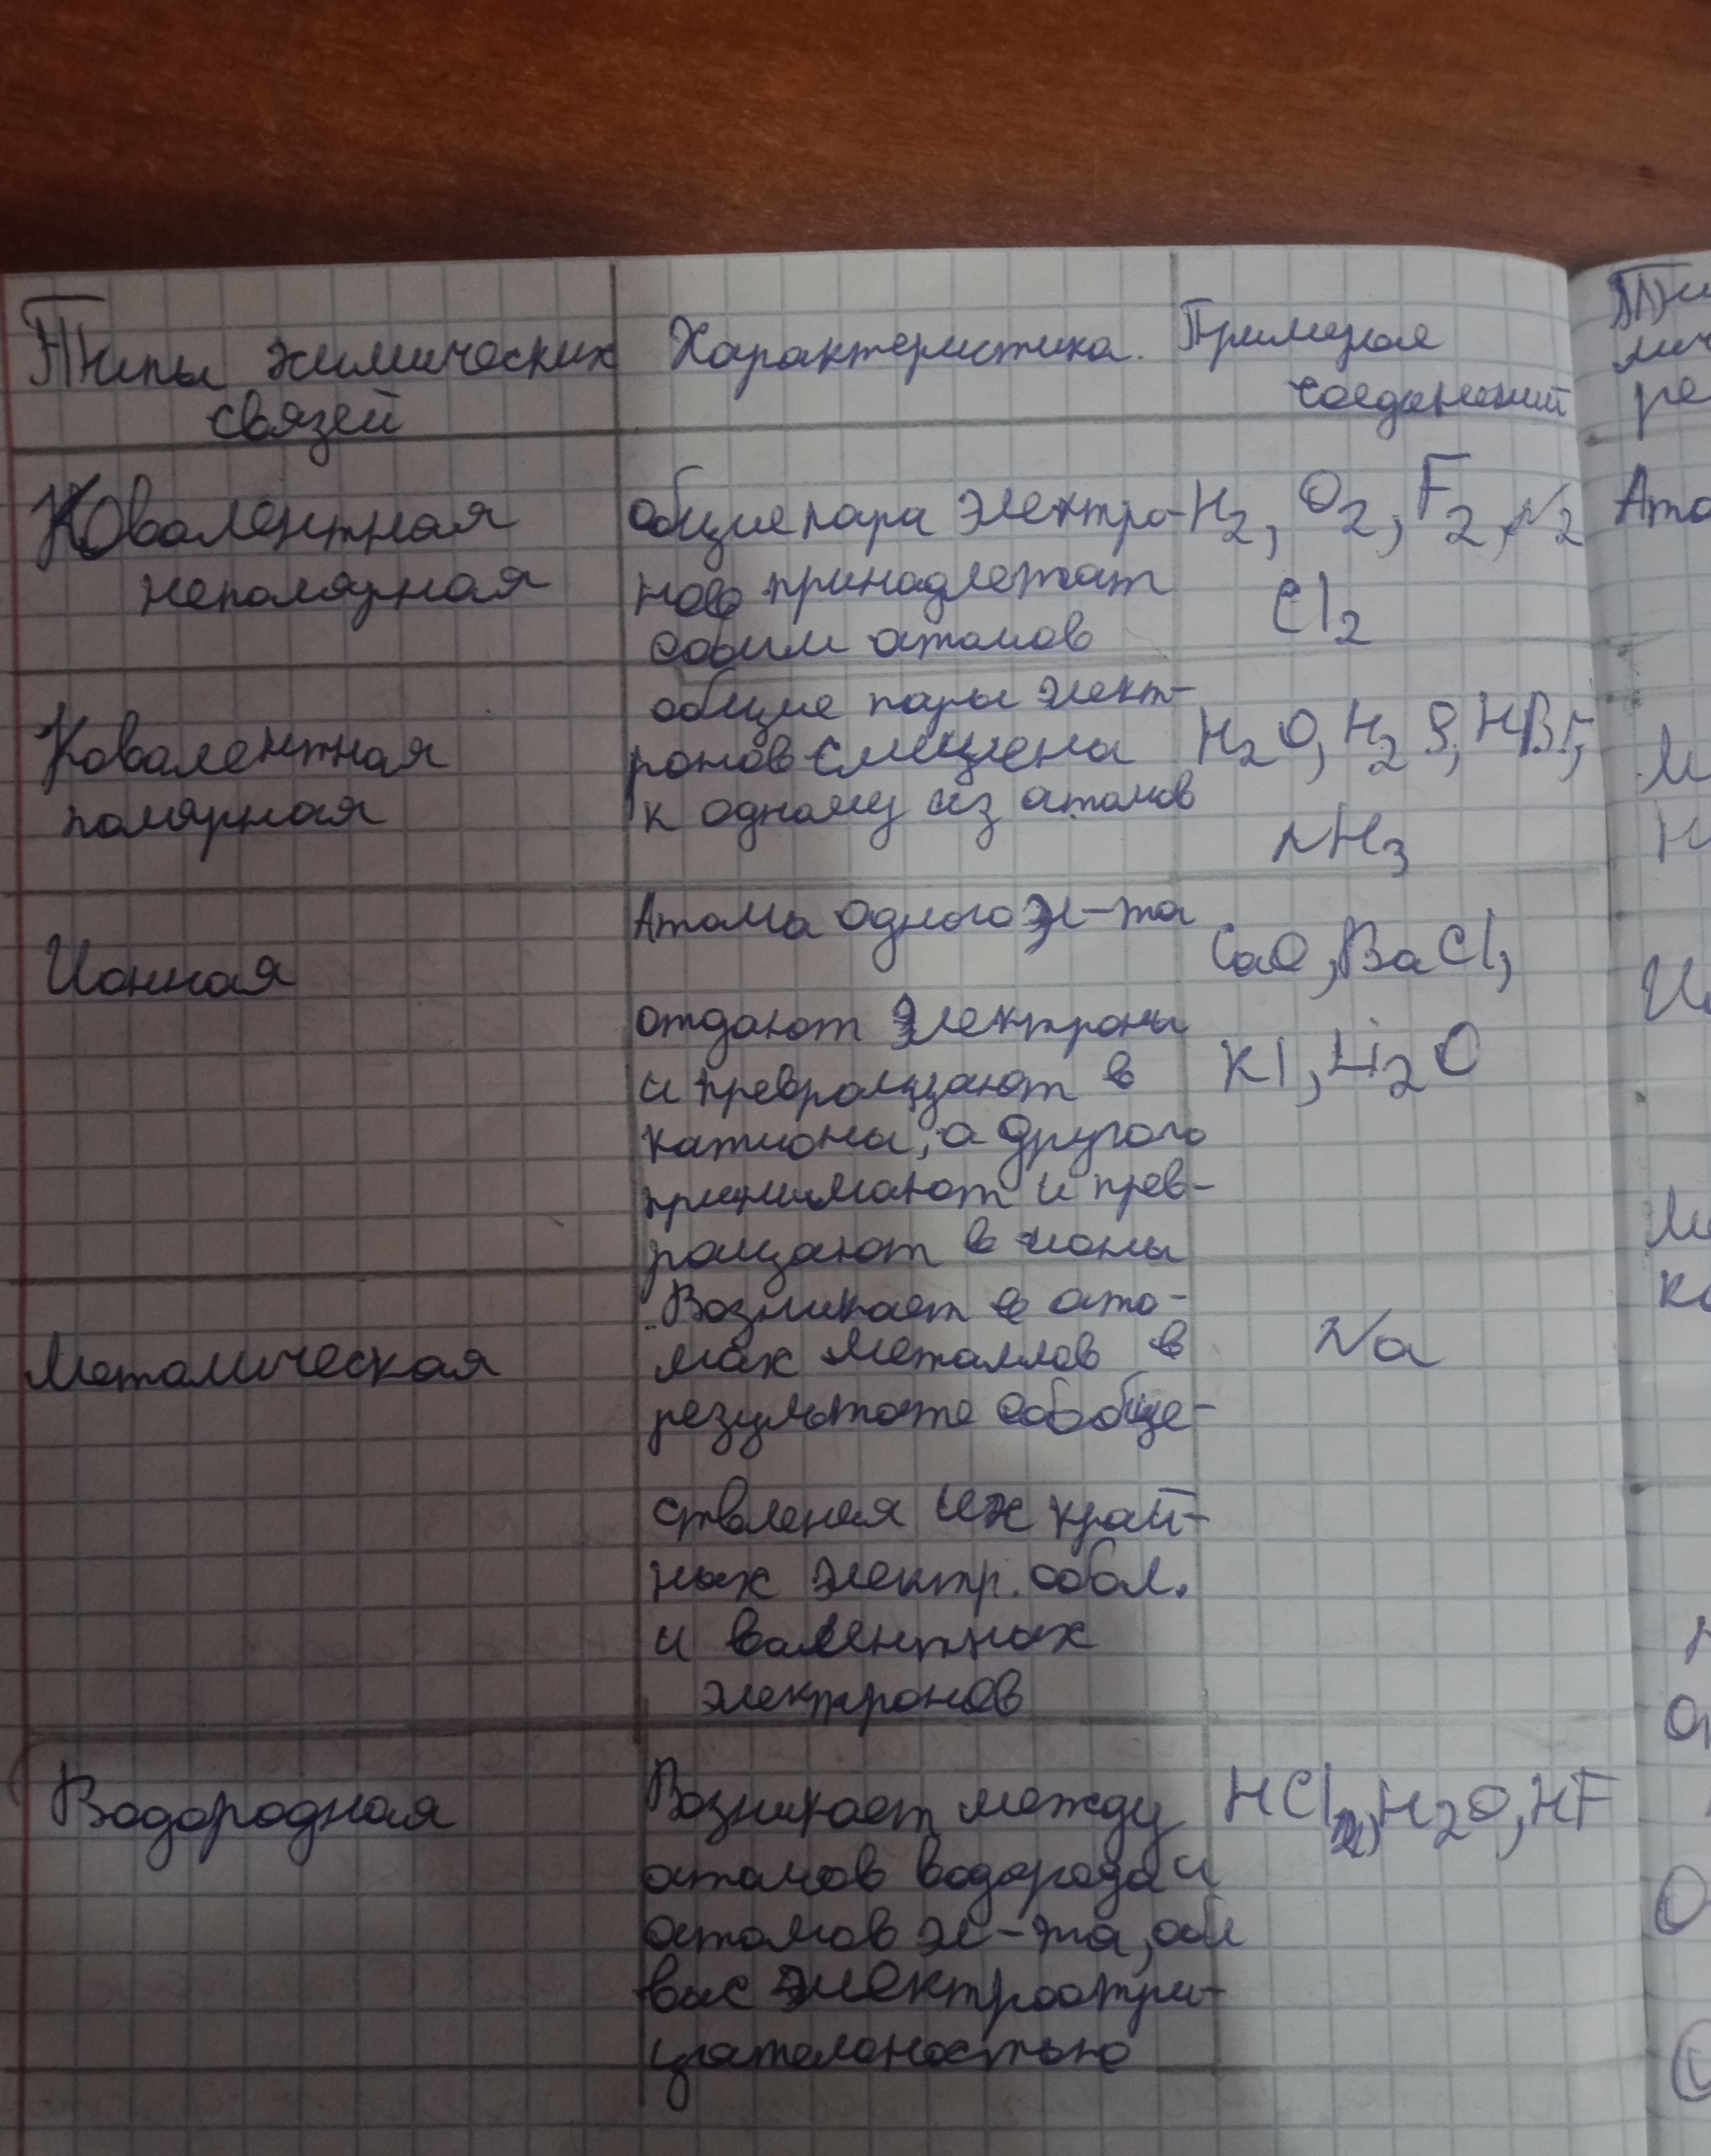 Типы химических
связей
Характеристика.
Примеры
соединений
Ковалентная
неполярная
общие пара электро-
нов принадлежат
обоим атомов
H₂, O₂, F₂, N₂
Cl₂
Ковалентная
полярная
общие пары элект-
ронов смещена
к одному из атомов
H₂O, H₂S, HBr,
NH₃
Ионная
Атомы одного эл-та
отдают электроны
и превращают в
катионы, а другого
принимают и прев-
ращают в ионы
CaO, BaCl,
KI, Li₂O
Металическая
Возникает в ато-
мах металлов в
результате обобще-
ствления их край-
них электр. обол.
и валентных
электронов
Na
Водородная
Возникает между
атомов водорода и
атомов эл-та, обл
выс электроотри-
цателеностью
HCl, H₂O, HF